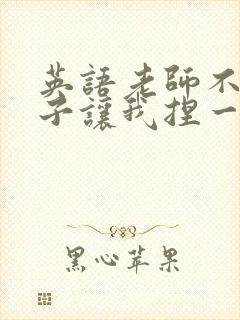 英語老師不
子讓我捏一
黑心苹果